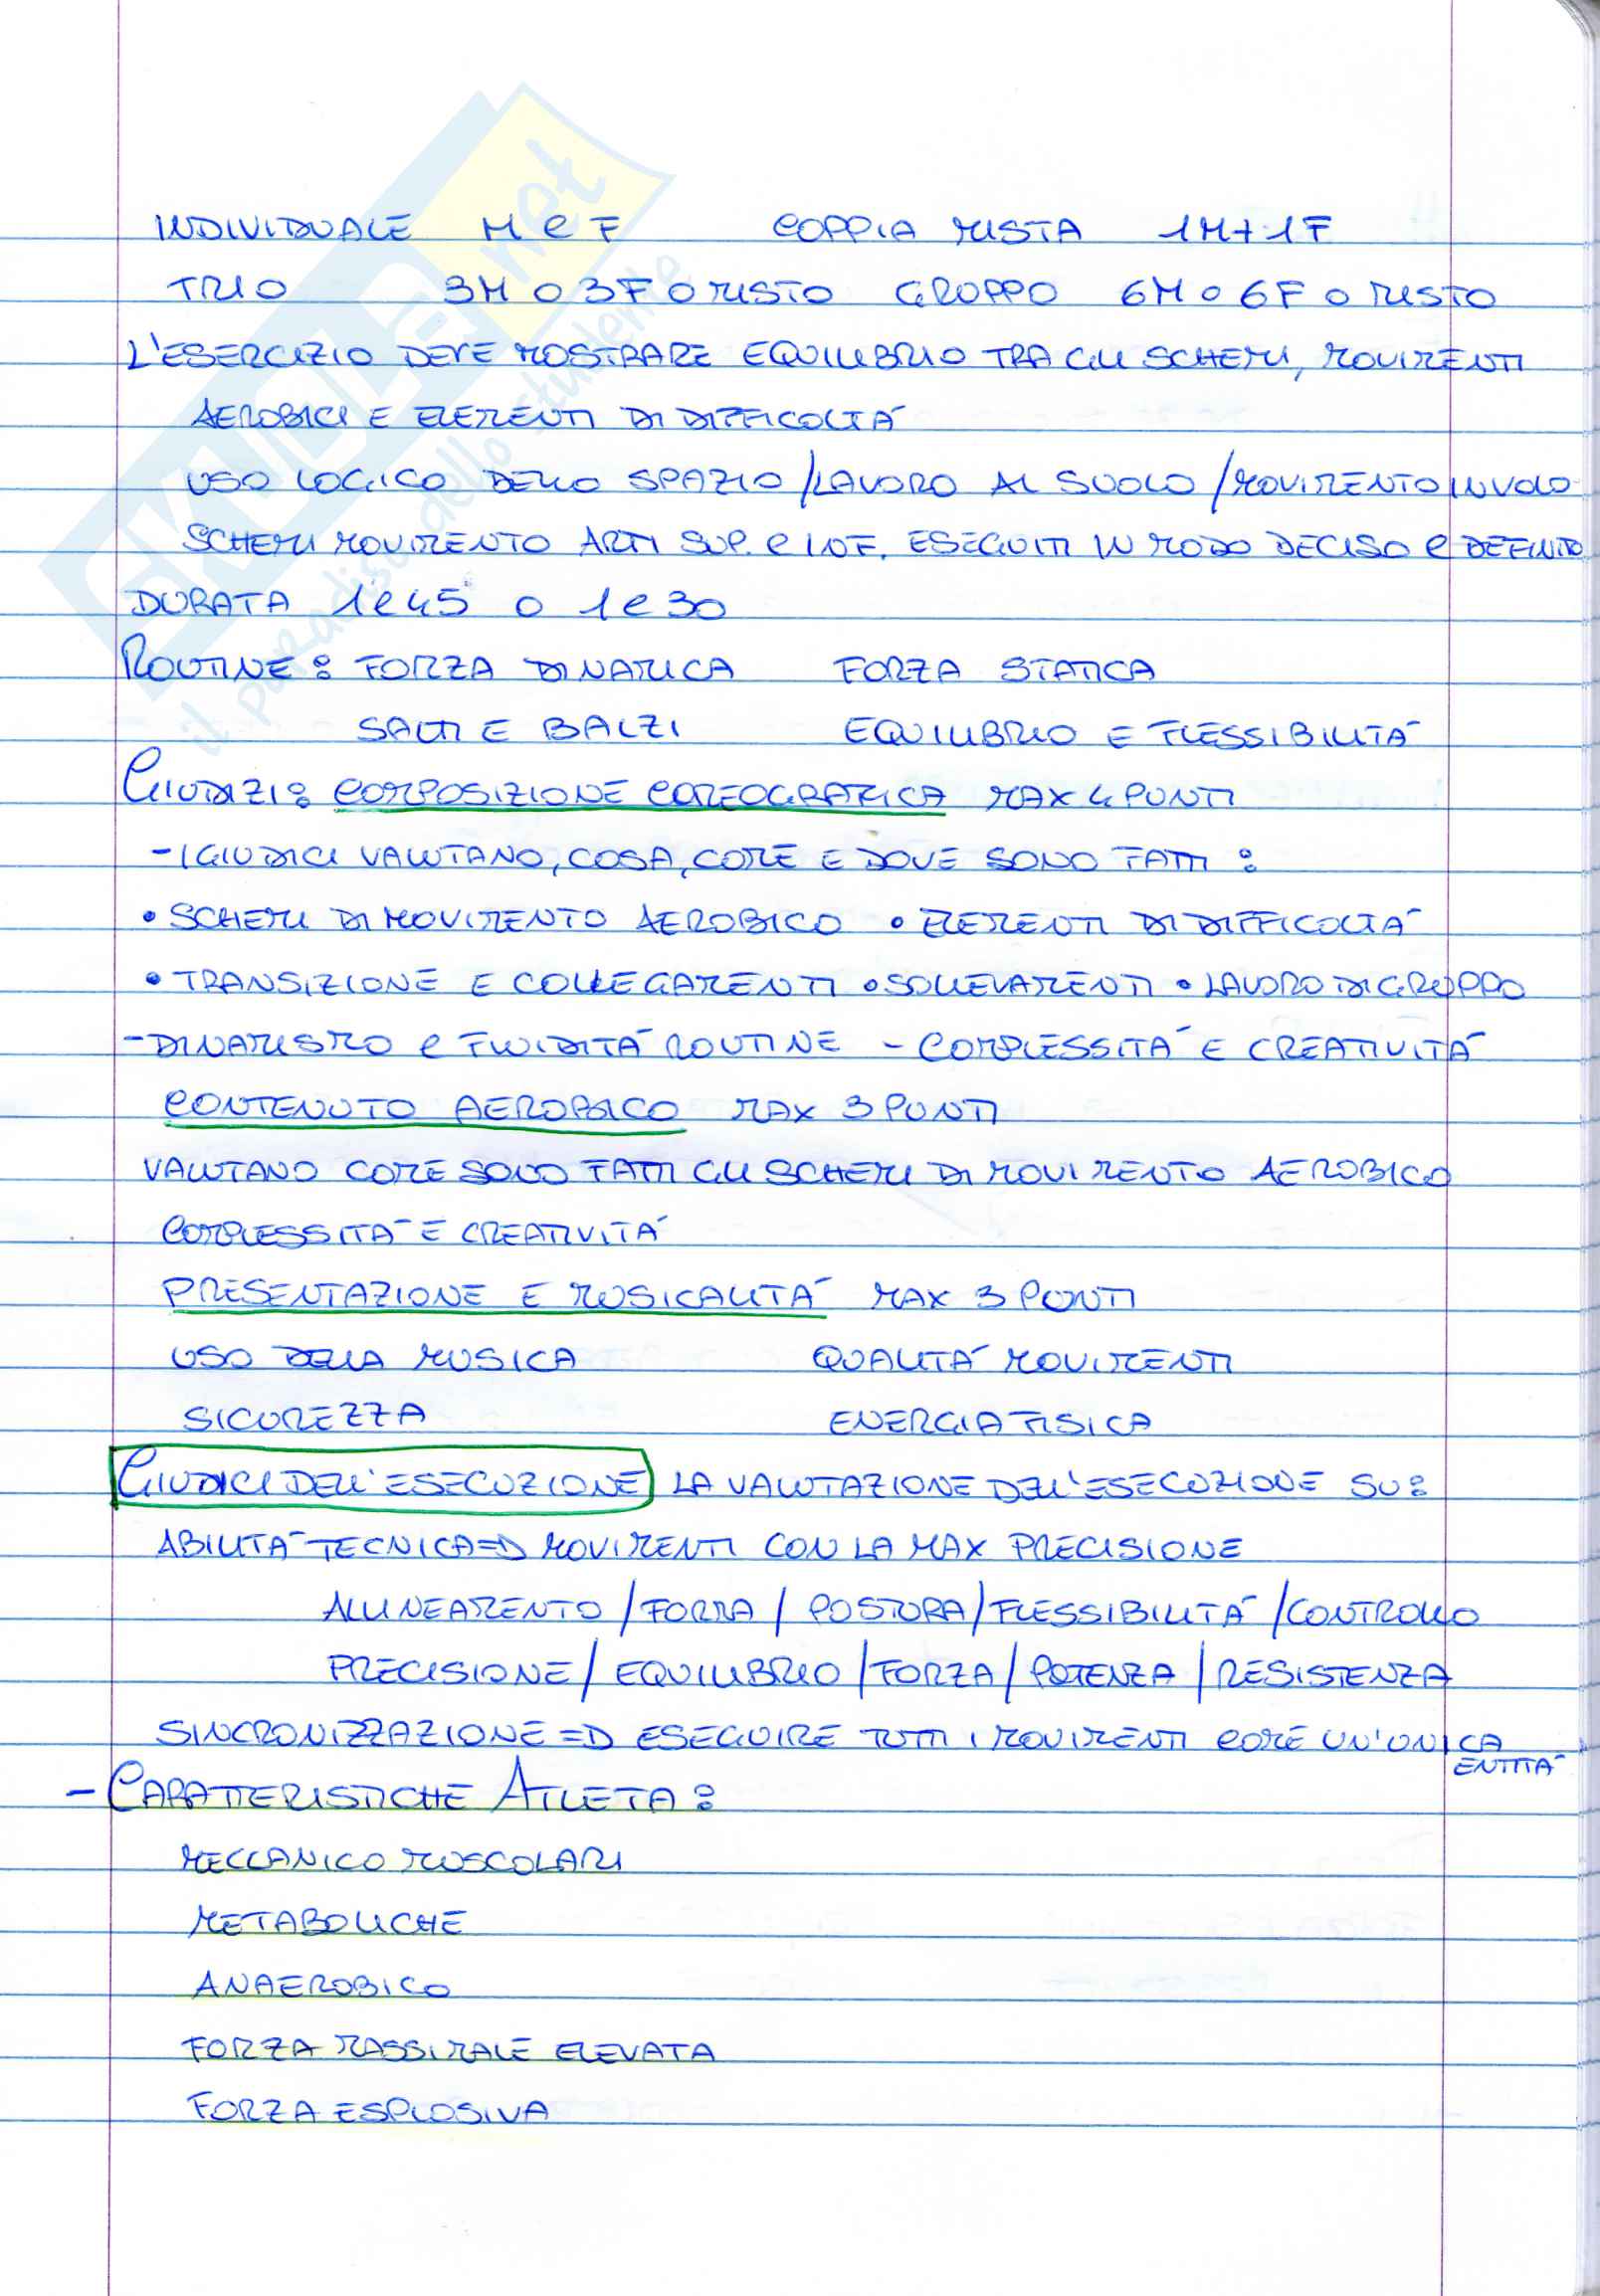 SKUOLA.net
il paradiso dello studente
INDIVIDUALE M e F COPPIA MISTA 1M+1F
TRIO 3M O 3F O MISTO GRUPPO 6M O 6F O MISTO
L'ESERCIZIO DEVE MOSTRARE EQUILIBRIO TRA GLI SCHEMI, MOVIMENTI
AEROBICI E ELEMENTI DI DIFFICOLTÀ
USO LOGICO DELLO SPAZIO / LAVORO AL SUOLO / MOVIMENTO IN VOLO
SCHEMI MOVIMENTO ARTI SUP. e INF. ESEGUITI IN MODO DECISO e DEFINITO
DURATA 1e45 o 1e30
ROUTINE: FORZA DINAMICA FORZA STATICA
SALTI E BALZI EQUILIBRIO E FLESSIBILITÀ
GIUDIZI: COMPOSIZIONE COREOGRAFICA MAX 4 PUNTI
- I GIUDICI VALUTANO, COSA, COME E DOVE SONO FATTI:
• SCHEMI DI MOVIMENTO AEROBICO • ELEMENTI DI DIFFICOLTÀ
• TRANSIZIONE E COLLEGAMENTI • SOLLEVAMENTI • LAVORO DI GRUPPO
- DINAMISMO e FLUIDITÀ ROUTINE - COMPLESSITÀ E CREATIVITÀ
CONTENUTO AEROBICO MAX 3 PUNTI
VALUTANO COME SONO FATTI GLI SCHEMI DI MOVIMENTO AEROBICO
COMPLESSITÀ E CREATIVITÀ
PRESENTAZIONE E MUSICALITÀ MAX 3 PUNTI
USO DELLA MUSICA QUALITÀ MOVIMENTI
SICUREZZA ENERGIA FISICA
GIUDICI DELL'ESECUZIONE LA VALUTAZIONE DELL'ESECUZIONE SU:
ABILITÀ TECNICA => MOVIMENTI CON LA MAX PRECISIONE
ALLINEAMENTO / FORMA / POSTURA / FLESSIBILITÀ / CONTROLLO
PRECISIONE / EQUILIBRIO / FORZA / POTENZA / RESISTENZA
SINCRONIZZAZIONE => ESEGUIRE TUTTI I MOVIMENTI COME UN'UNICA
ENTITÀ
- CARATTERISTICHE ATLETA:
MECCANICO MUSCOLARI
METABOLICHE
ANAEROBICO
FORZA MASSIMALE ELEVATA
FORZA ESPLOSIVA